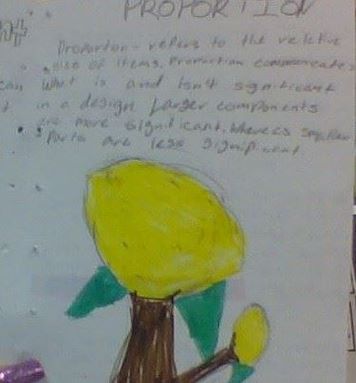 PROPORTION
Proportion - refers to the relative
size of items. Proportion communicates
can What is and isn't significant
in a design Larger components
are more significant, Whereas smaller
Parts are less significant